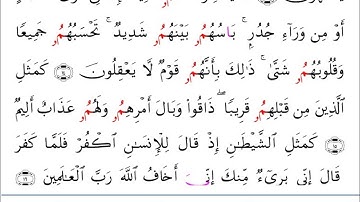 أَوْ مِن وَرَآءِ جُدُرٍۭ ۚ بَاسُهُمُۥ بَيْنَهُمُۥ شَدِيدٌ ۚ تَحْسِبُهُمُۥ جَمِيعًا
وَقُلُوبُهُمُۥ شَتَّىٰ ۚ ذَٰلِكَ بِأَنَّهُمُۥ قَوْمٌ لَّا يَعْقِلُونَ ۝١٤ كَمَثَلِ
ٱلَّذِينَ مِن قَبْلِهِمُۥ قَرِيبًا ۖ ذَاقُوا۟ وَبَالَ أَمْرِهِمُۥ وَلَهُمُۥ عَذَابٌ أَلِيمٌ
۝١٥ كَمَثَلِ ٱلشَّيْطَٰنِ إِذْ قَالَ لِلْإِنسَٰنِ ٱكْفُرْ فَلَمَّا كَفَرَ
قَالَ إِنِّى بَرِىٓءٌ مِّنكَ إِنِّىَ أَخَافُ ٱللَّهَ رَبَّ ٱلْعَٰلَمِينَ ۝١٦